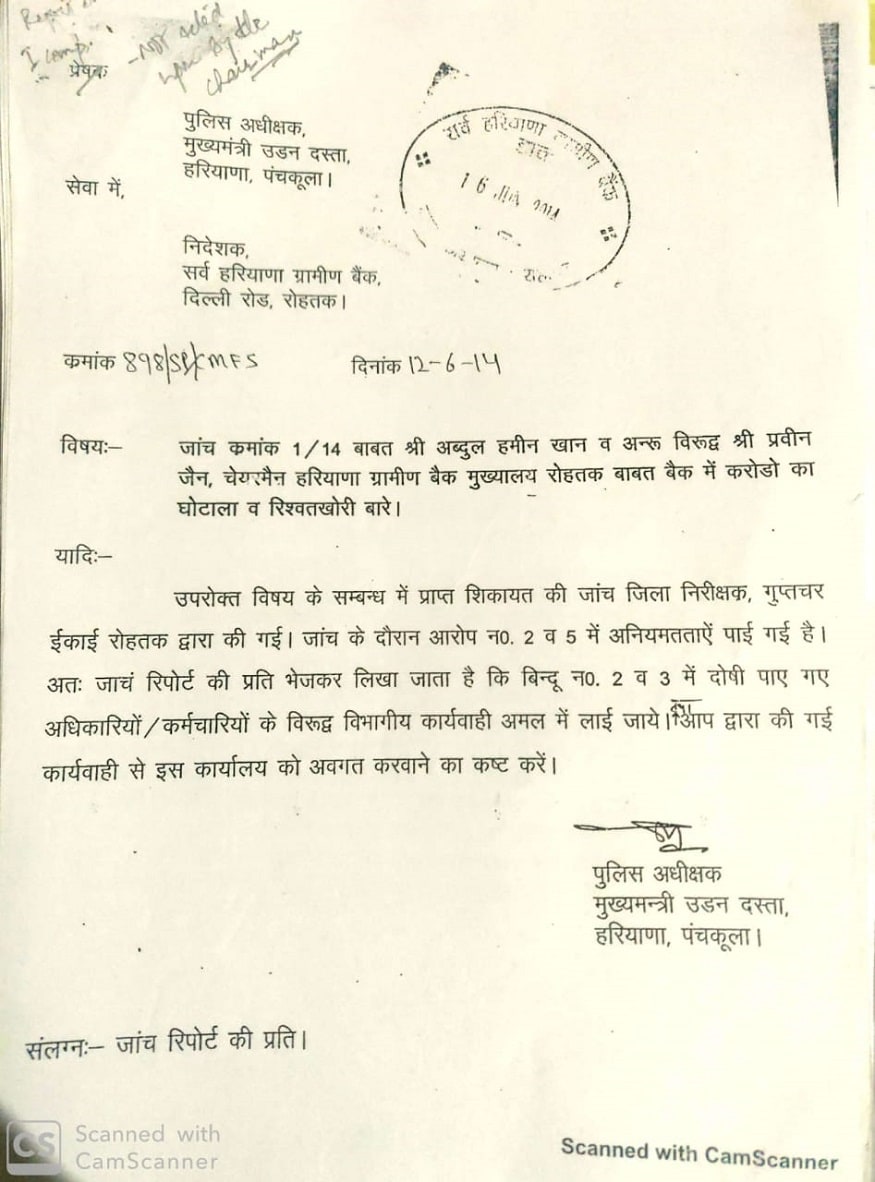 Report
I comp.
- Not acted
upon by the
chairman
प्रेषक
पुलिस अधीक्षक,
मुख्यमंत्री उडन दस्ता,
हरियाणा, पंचकूला।
सर्व हरियाणा ग्रामीण बैंक
16 JUN 2014
सेवा में,
निदेशक,
सर्व हरियाणा ग्रामीण बैंक,
दिल्ली रोड, रोहतक।
कमांक 898/SP/CMFS दिनांक 12-6-14
विषयः– जांच कमांक 1/14 बाबत श्री अब्दुल हमीन खान व अन्रू विरूद्व श्री प्रवीन
जैन, चेयरमैन हरियाणा ग्रामीण बैक मुख्यालय रोहतक बाबत बैक में करोडो का
घोटाला व रिश्वतखोरी बारे।
यादिः–
उपरोक्त विषय के सम्बन्ध में प्राप्त शिकायत की जांच जिला निरीक्षक, गुप्तचर
ईकाई रोहतक द्वारा की गई। जांच के दौरान आरोप न0. 2 व 5 में अनियमतताऐं पाई गई है।
अतः जाचं रिपोर्ट की प्रति भेजकर लिखा जाता है कि बिन्दू न0. 2 व 3 में दोषी पाए गए
अधिकारियों/कर्मचारियों के विरूद्व विभागीय कार्यवाही अमल में लाई जाये। आप द्वारा की गई
कार्यवाही से इस कार्यालय को अवगत करवाने का कष्ट करें।
पुलिस अधीक्षक
मुख्यमन्त्री उडन दस्ता,
हरियाणा, पंचकूला।
संलग्नः– जांच रिपोर्ट की प्रति।
CS Scanned with
CamScanner
Scanned with CamScanner